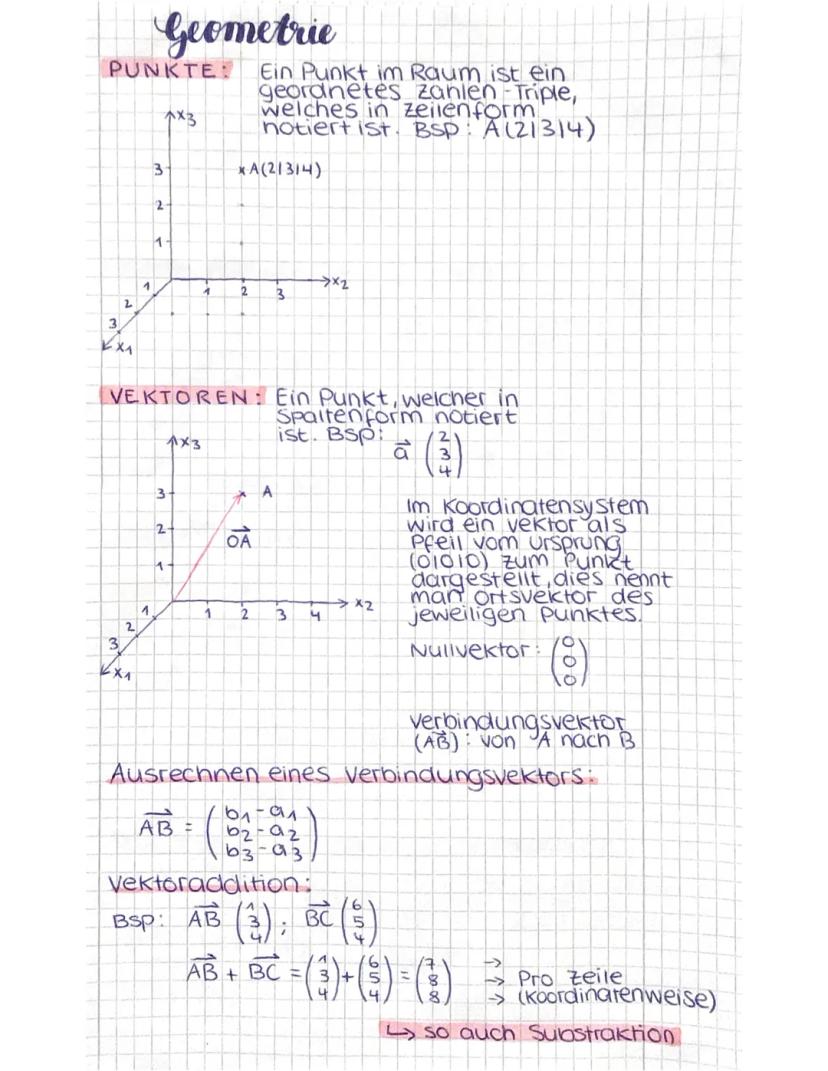 Geometrie
PUNKTE: Ein Punkt im Raum ist ein
geordnetes zahlen-Triple,
welches in zeilenform
notiert ist. BSP: A(2|3|4)
x3
3
x A(2|3|4)
2
1
x2
1 2 3
1
2
3
x1
VEKTOREN: Ein Punkt, welcher in
Spaltenform notiert
ist. BSP: a⃗ (2 3 4)
x3
3
A
2
OA⃗
1
x2
1 2 3 4
1
2
3
x1
Im Koordinatensystem
wird ein vektor als
Pfeil vom ursprung
(0|0|0) zum Punkt
dargestellt, dies nennt
man ortsvektor des
jeweiligen Punktes.
Nullvektor: (0 0 0)
verbindungsvektor
(AB⃗): von A nach B
Ausrechnen eines verbindungsvektors:
AB⃗ = (b1-a1 b2-a2 b3-a3)
Vektoraddition:
BSP: AB⃗ (1 3 4); BC⃗ (6 5 4)
AB⃗ + BC⃗ = (1 3 4) + (6 5 4) = (7 8 8)
→
→ Pro zeile
→ (koordinarenweise)
↳ so auch Substraktion